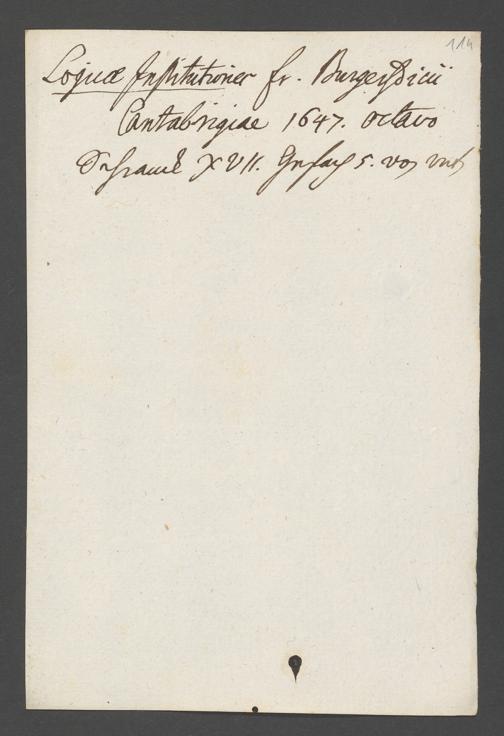 114
Logicae Institutiones fr. Burgersdicii
Cantabrigiae 1647. octavo
Schranck XVII. Gefach 5. von